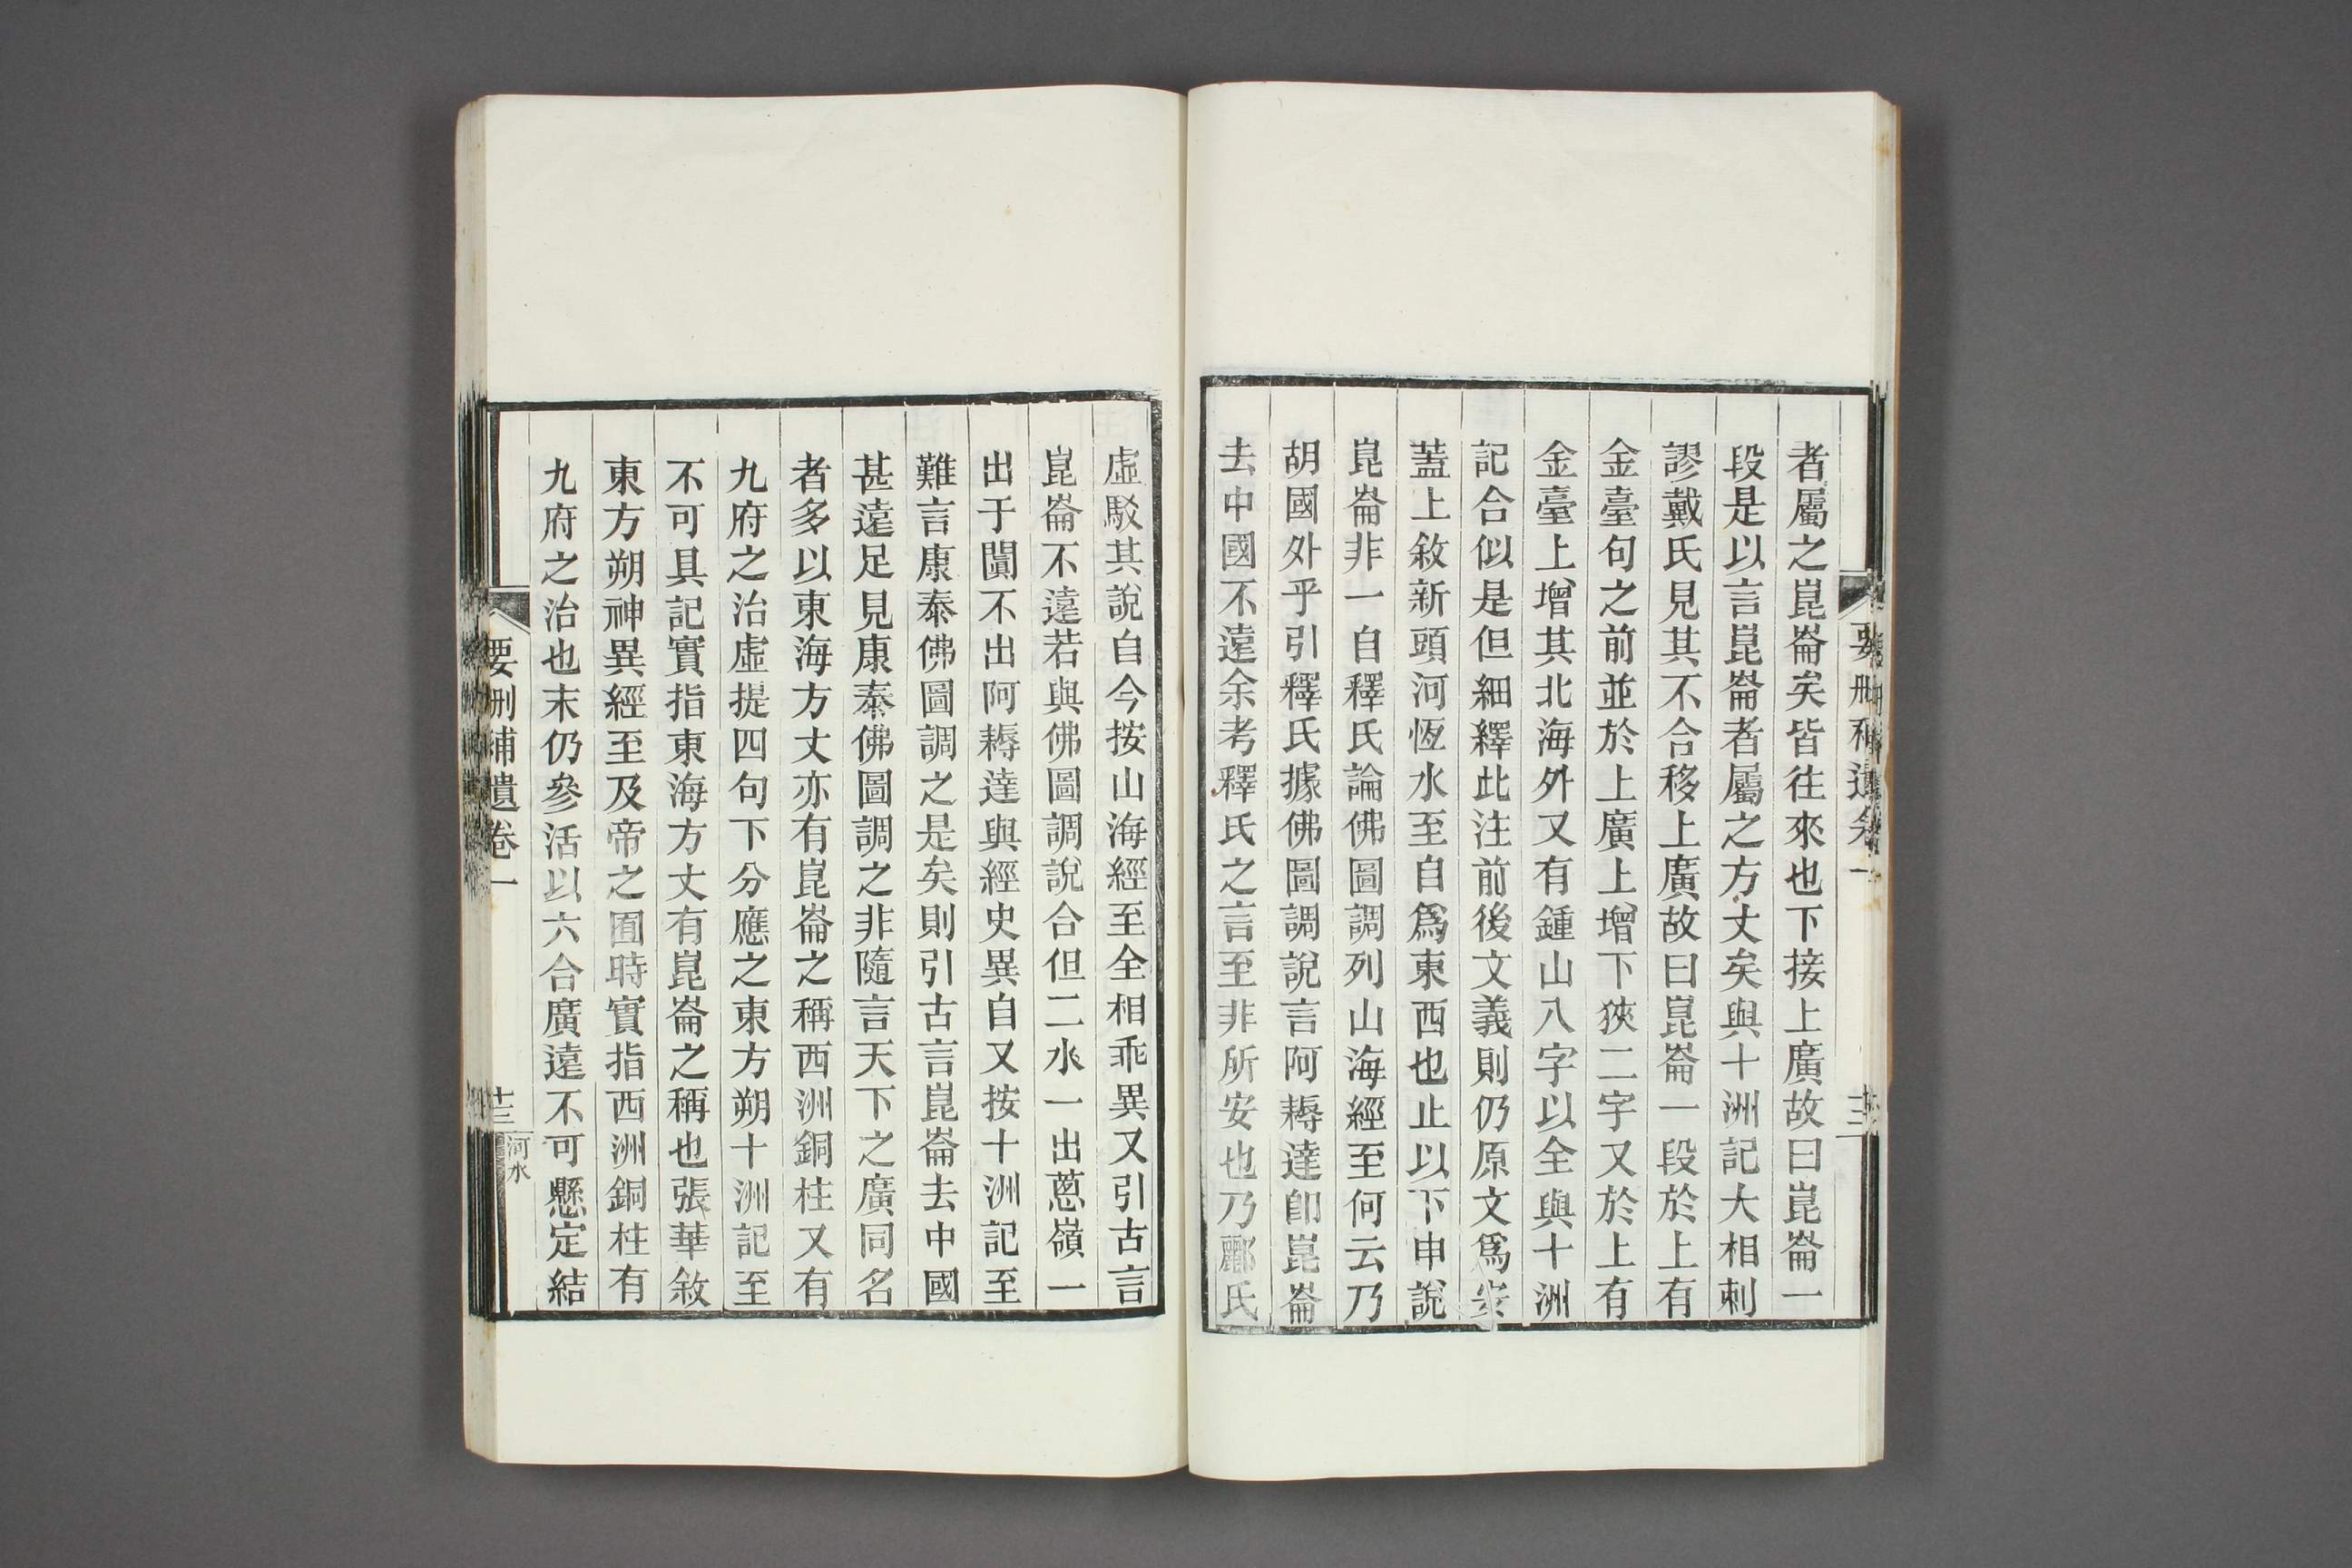 者屬之崑崙矣皆往來也下接上廣故曰崑崙一
段是以言崑崙者屬之方丈矣與十洲記大相刺
謬戴氏見其不合移上廣故曰崑崙一段於上有
金臺句之前並於上廣上增下狹二字又於上有
金臺上增其北海外又有鍾山八字以全與十洲
記合似是但細繹此注前後文義則仍原文爲安
蓋上敘新頭河恆水至自爲東西也止以下申說
崑崙非一自釋氏論佛圖調列山海經至何云乃
胡國外乎引釋氏據佛圖調說言阿耨達卽崑崙
去中國不遠余考釋氏之言至非所安也乃酈氏
虛駁其說自今按山海經至全相乖異又引古言
崑崙不遠若與佛圖調說合但二水一出蔥嶺一
出于闐不出阿耨達與經史異自又按十洲記至
難言康泰佛圖調之是矣則引古言崑崙去中國
甚遠足見康泰佛圖調之非隨言天下之廣同名
者多以東海方丈亦有崑崙之稱西洲銅柱又有
九府之治虛提四句下分應之東方朔十洲記至
不可具記實指東海方丈有崑崙之稱也張華敘
東方朔神異經至及帝之囿時實指西洲銅柱有
九府之治也末仍參活以六合廣遠不可懸定結
要刪補遺卷一
十三
河水